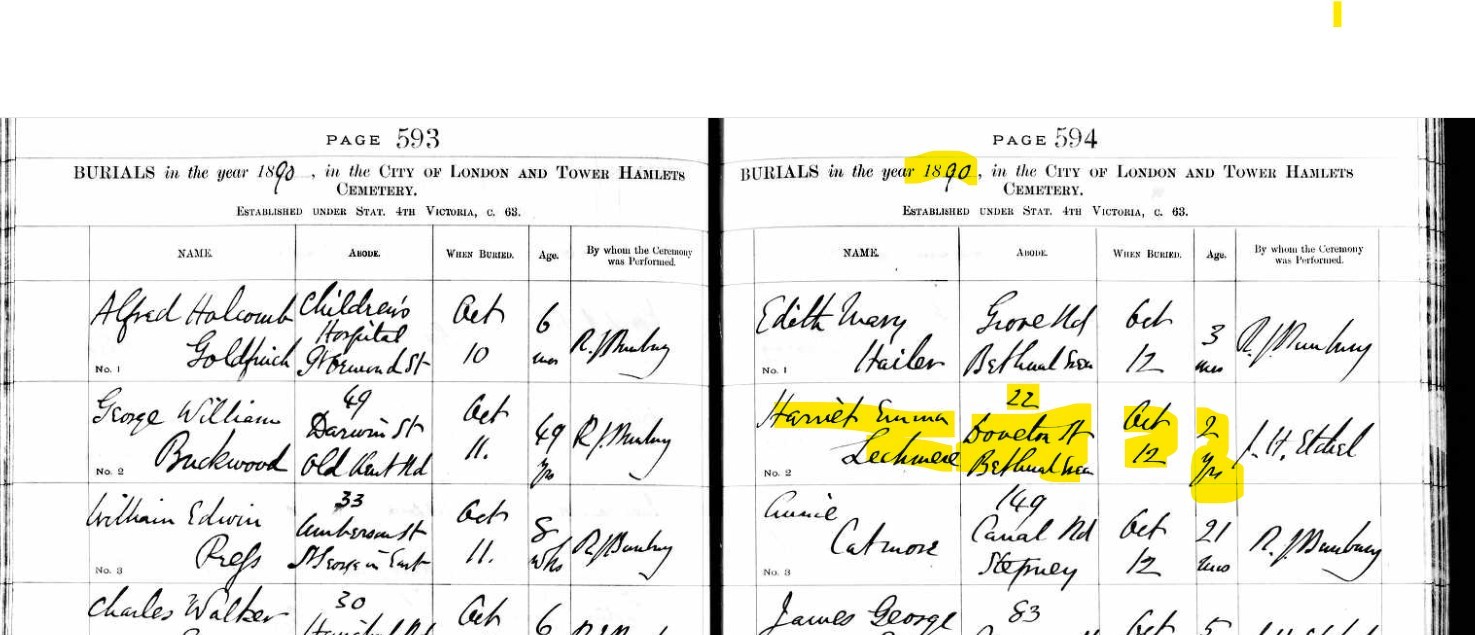 PAGE 593
BURIALS in the year 1890, in the CITY OF LONDON AND TOWER HAMLETS
CEMETERY.
ESTABLISHED UNDER STAT. 4TH VICTORIA, C. 63.
NAME. ABODE. WHEN BURIED. Age. By whom the Ceremony
was Performed.
Alfred Holcomb Children's Oct 6
Hospital
Goldfinch Ormond St 10 mos R. J. Bunbury
No. 1
George William 49 Oct
Darwin St 49 R. J. Bunbury
Buckwood Old Kent Rd 11. yrs
No. 2
William Edwin 33 Oct 8
St George in East 11. wks R. J. Bunbury
No. 3
Charles Walker 30 Oct 6
PAGE 594
BURIALS in the year 1890, in the CITY OF LONDON AND TOWER HAMLETS
CEMETERY.
ESTABLISHED UNDER STAT. 4TH VICTORIA, C. 63.
NAME. ABODE. WHEN BURIED. Age. By whom the Ceremony
was Performed.
Edith Mary Grove Rd Oct 3
Hailer Bethnal Green 12 mos R. J. Bunbury
No. 1
Harriet Emma 22 Oct 2
Doveton St
Lechmere Bethnal Green 12 yrs
No. 2
Annie 149
Catmore Canal Rd Oct 21 R. J. Bunbury
Stepney 12 mos
No. 3
James George 83 Oct 5